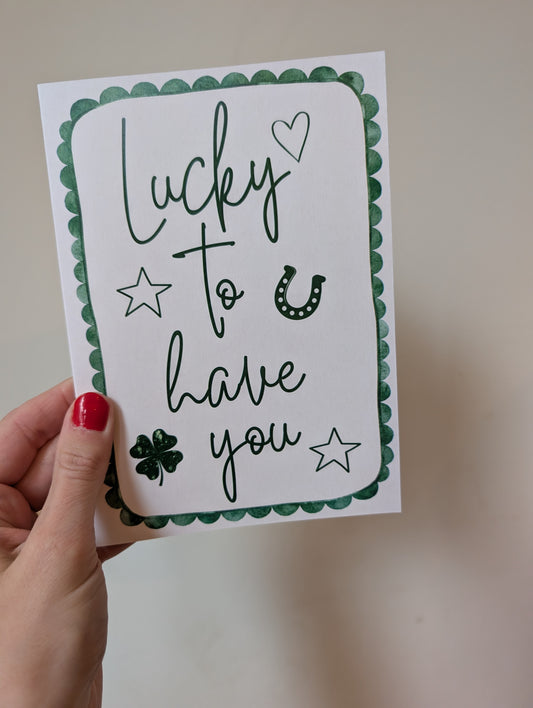 Lucky
to
have
you